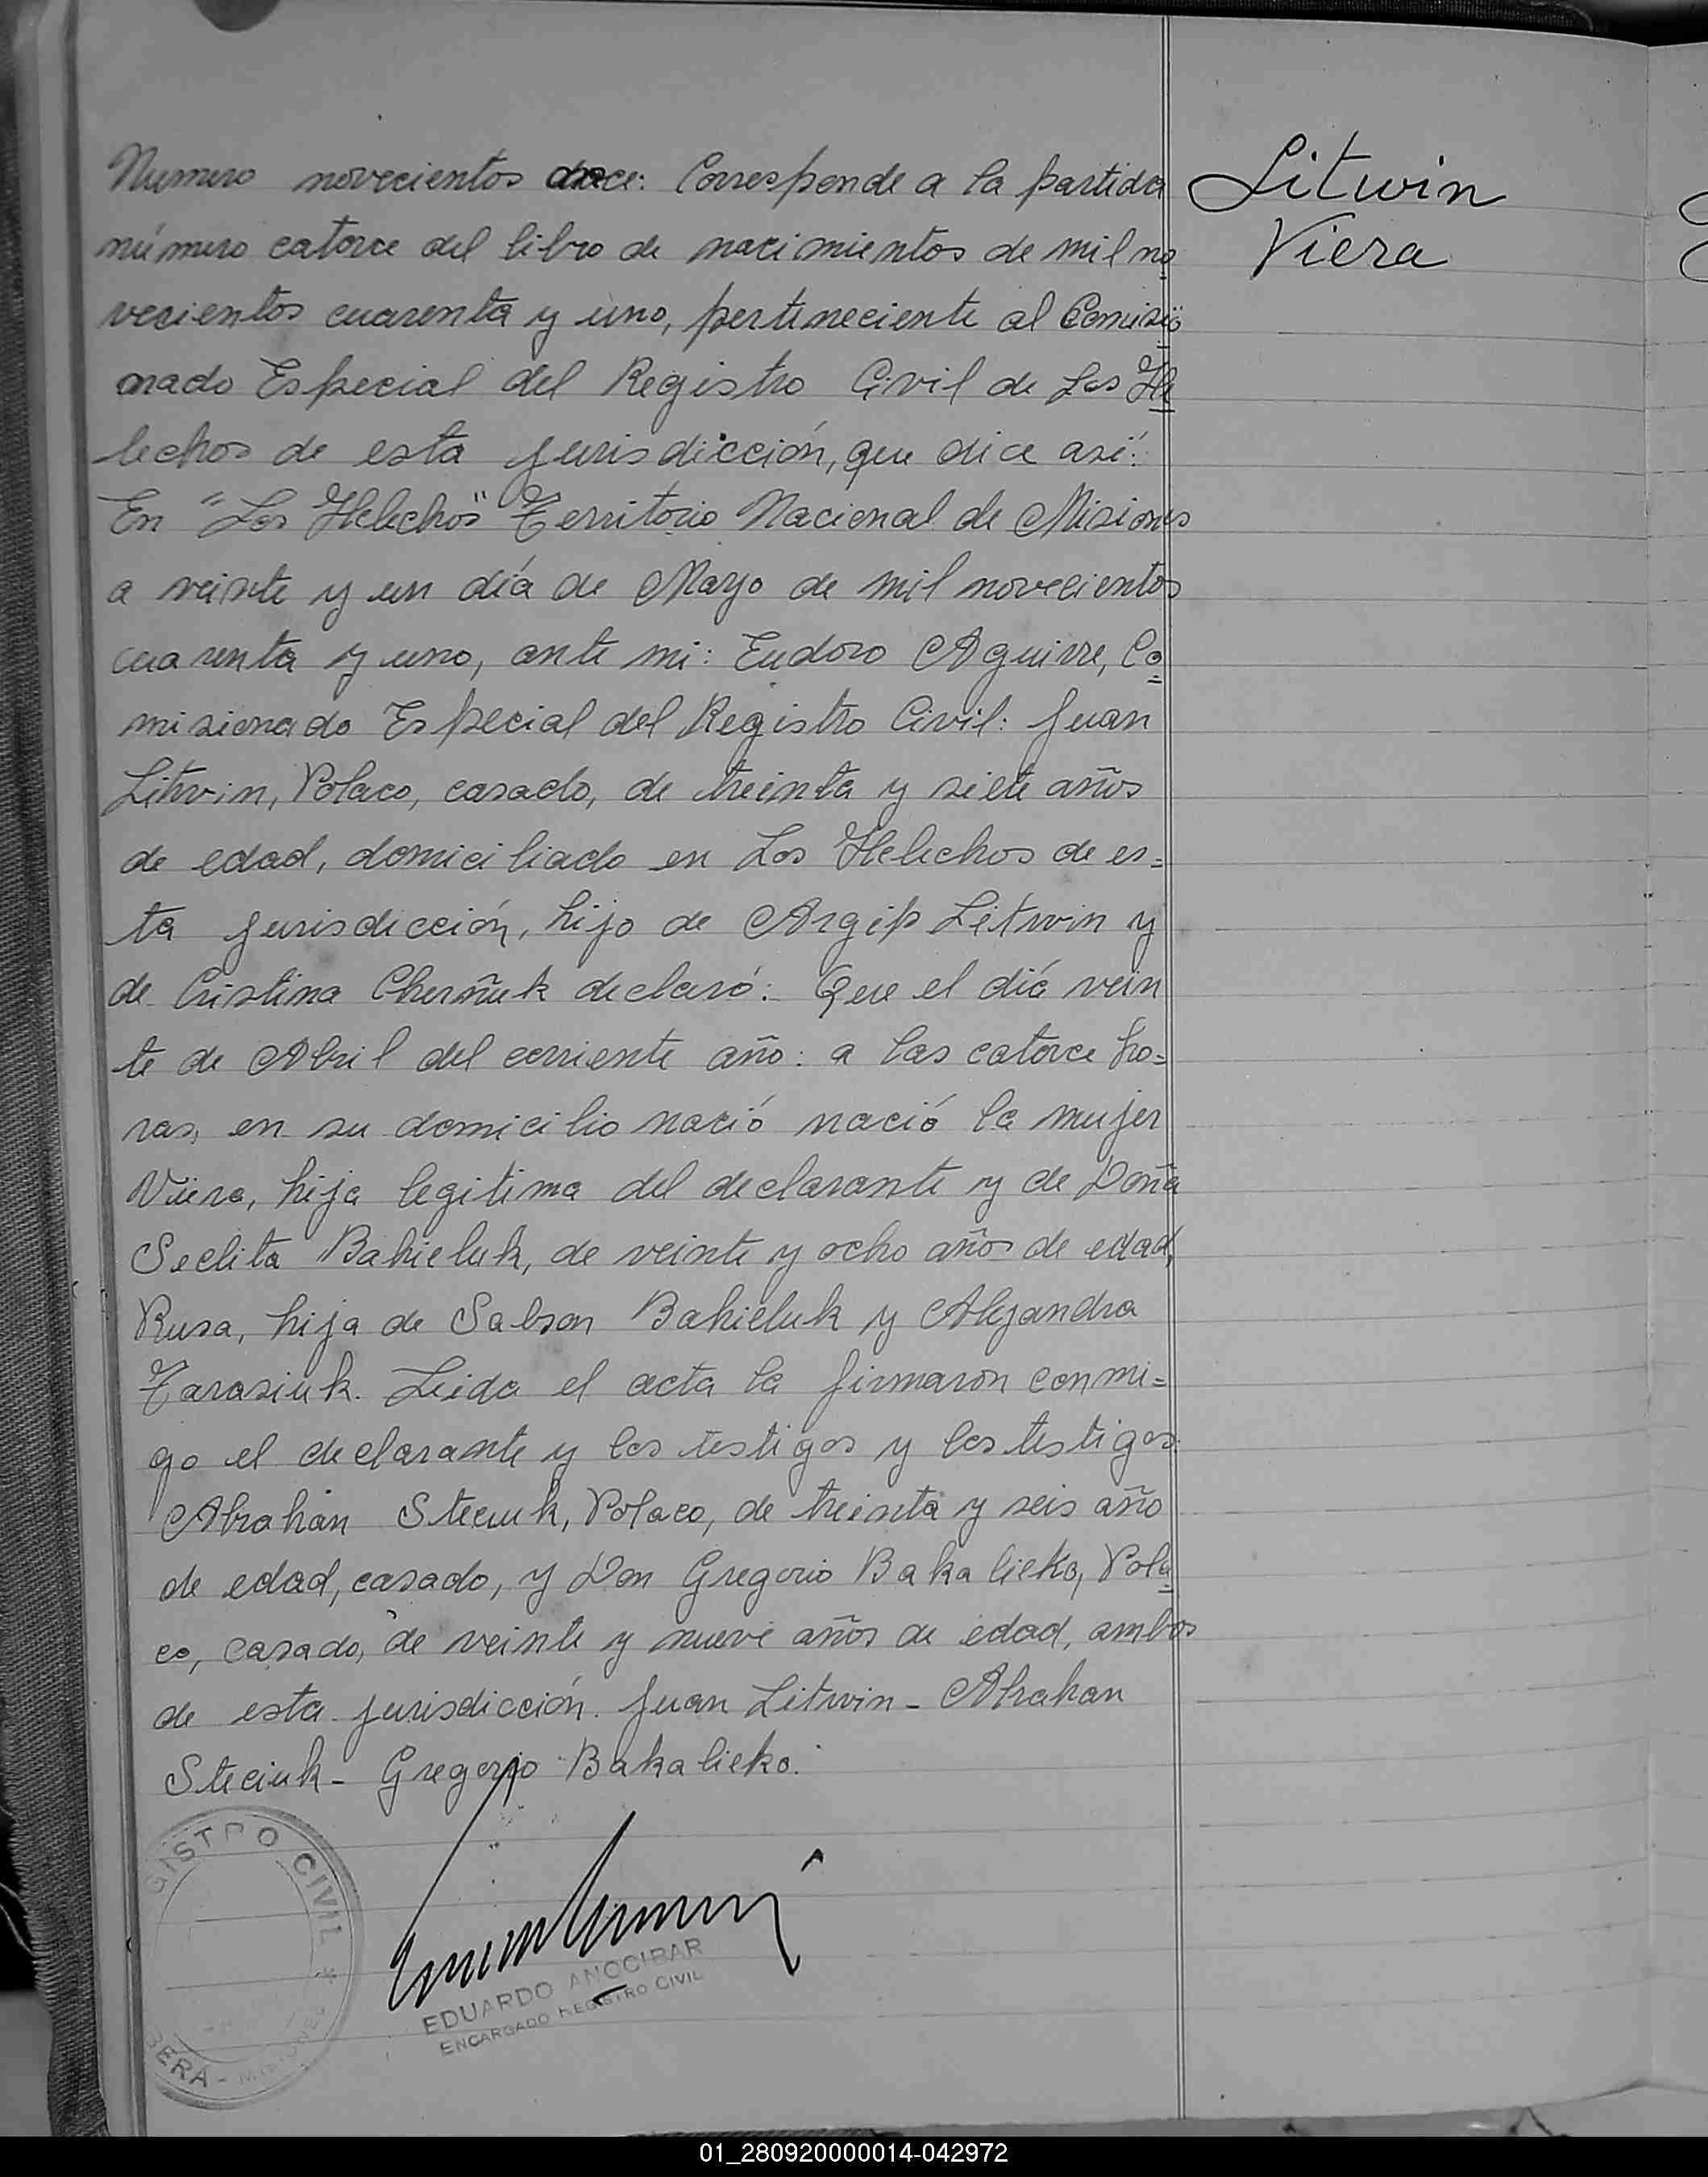 Numero novecientos doce: Corresponde a la partida
Litwin
número catorce del libro de nacimientos de mil no
Viera
vecientos cuarenta y uno, perteneciente al Comisio
nado Especial del Registro Civil de Los He
lechos de esta jurisdicción, que dice así:
En "Los Helechos" Territorio Nacional de Misiones
a veinte y un día de Mayo de mil novecientos
cuarenta y uno, ante mi: Eudoro Aguirre, Co
misionado Especial del Registro Civil: Juan
Litwin, Polaco, casado, de treinta y siete años
de edad, domiciliado en Los Helechos de es=
ta jurisdicción, hijo de Argip Litwin y
de Cristina Cherñuk declaró: Que el día vein
te de Abril del corriente año: a las catorce ho=
ras, en su domicilio nació nació la mujer
Viera, hija legitima del declarante y de Doña
Seclita Bakieluk, de veinte y ocho años de edad,
Rusa, hija de Sabson Bakieluk y Alejandra
Tarasiuk. Leida el acta la firmaron conmi=
go el declarante y los testigos y los testigos
Abrahan Steciuk, Polaco, de treinta y seis año
de edad, casado, y Don Gregorio Bakalieko, Pola
co, casado, de veinte y nueve años de edad, ambos
de esta jurisdicción. Juan Litwin - Abrahan
Steciuk - Gregorio Bakalieko.
GISTRO CIVIL *
BERÁ - MISIONES
EDUARDO ANOCIBAR
ENCARGADO REGISTRO CIVIL
01_280920000014-042972